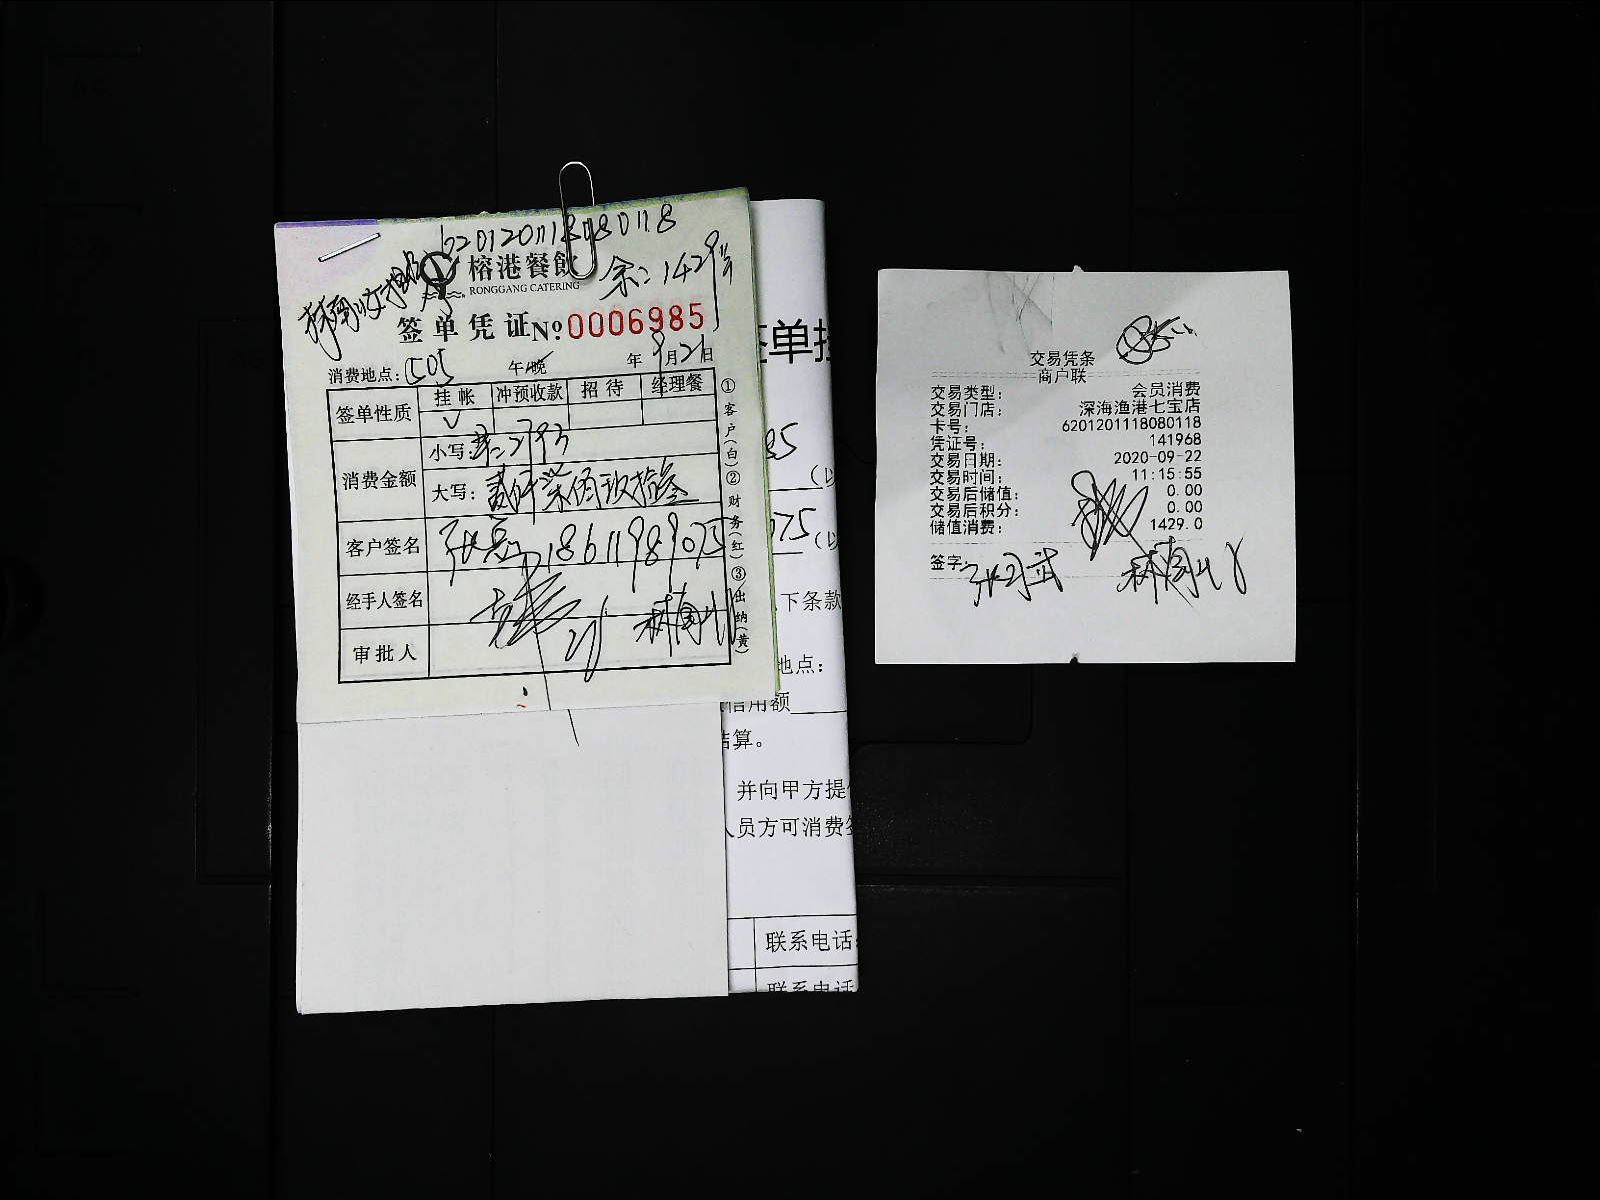 6201201118080118
榕港餐飲
RONGGANG CATERING
余：1429
签单凭证 No:0006985
消费地点：505 午/晚 年 9月21日
签单性质 挂帐 冲预收款 招待 经理餐
✓
消费金额 小写：2793
大写：贰仟柒佰玖拾叁
客户签名 18611989075
经手人签名
审批人
①客户(白)②财务(红)③出纳(黄)
签单挂
85
075
下条款
地点：
信用额
结算。
并向甲方提
员方可消费
联系电话
联系电话
交易凭条
商户联
交易类型： 会员消费
交易门店： 深海渔港七宝店
卡号： 6201201118080118
凭证号： 141968
交易日期： 2020-09-22
交易时间： 11:15:55
交易后储值： 0.00
交易后积分： 0.00
储值消费： 1429.0
签字：